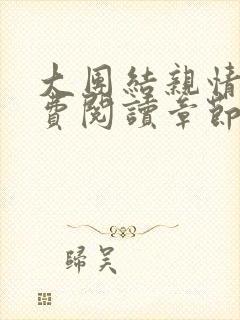 大團結親情
費閱讀章節
歸吴